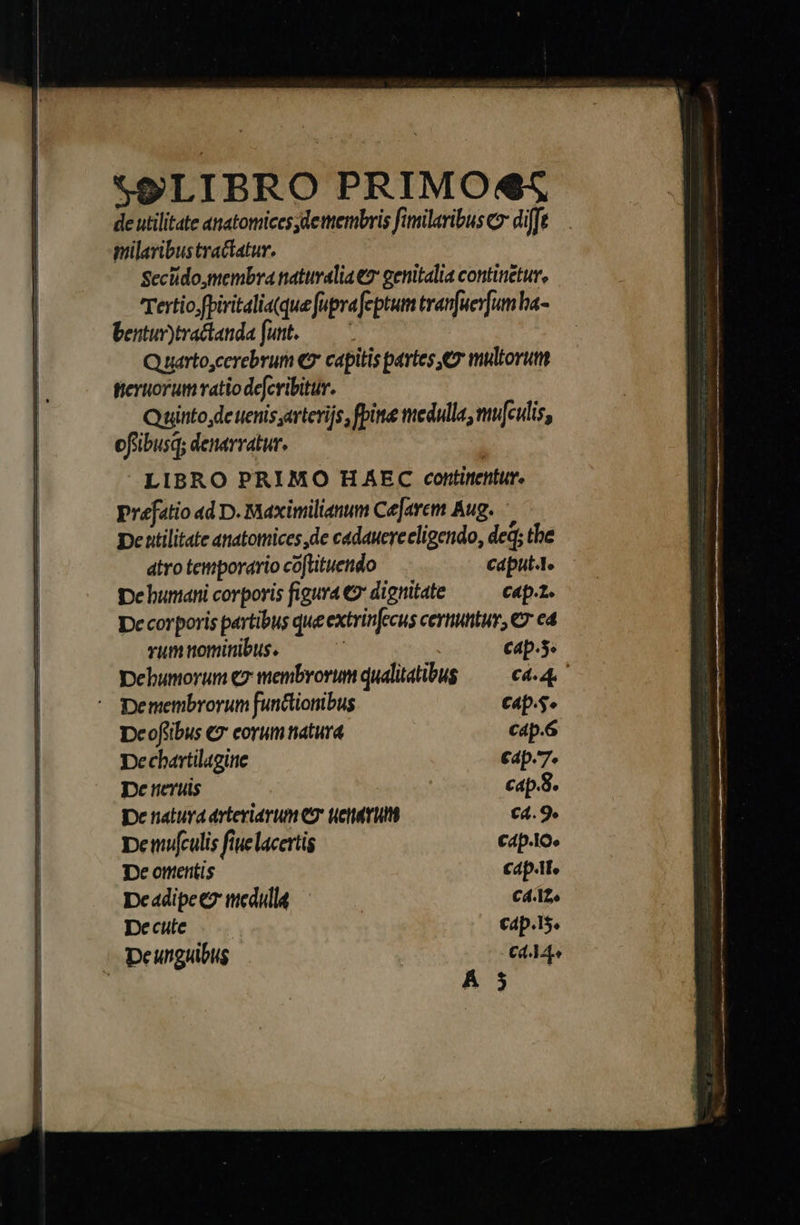 LIBRO PRIMO
de utilitate anatomices, de membris ſimilaribus & diſſi
milaribus tractatur.
Secūdo, membra naturalia & genitalia continētur.
Tertio, ſpiritalia (quæ ſupra ſeptum tranſuerſum ha-
bentur) tractanda ſunt.
Quarto, cerebrum & capitis partes, & multorum
neruorum ratio deſcribitur.
Quinto, de uenis, arterijs, ſpinæ medulla, muſculis,
oſsibusq́; denarratur.
LIBRO PRIMO HAEC continentur.
Præfatio ad D. Maximilianum Ceſarem Aug.
De utilitate anatomices, de cadauere eligendo, deq́; the
atro temporario cōſtituendo caput.1.
De humani corporis figura & dignitate cap.2.
De corporis partibus quæ extrinſecus cernuntur, & ea
rum nominibus. cap.3.
De humorum & membrorum qualitatibus ca.4.
De membrorum functionibus cap.5.
De oſsibus & eorum natura cap.6
De chartilagine cap.7.
De neruis cap.8.
De natura arteriarum & uenarum ca.9.
De muſculis ſiue lacertis cap.10.
De omentis cap.11.
De adipe & medulla ca.12.
De cute cap.13.
De unguibus ca.14.
A 3